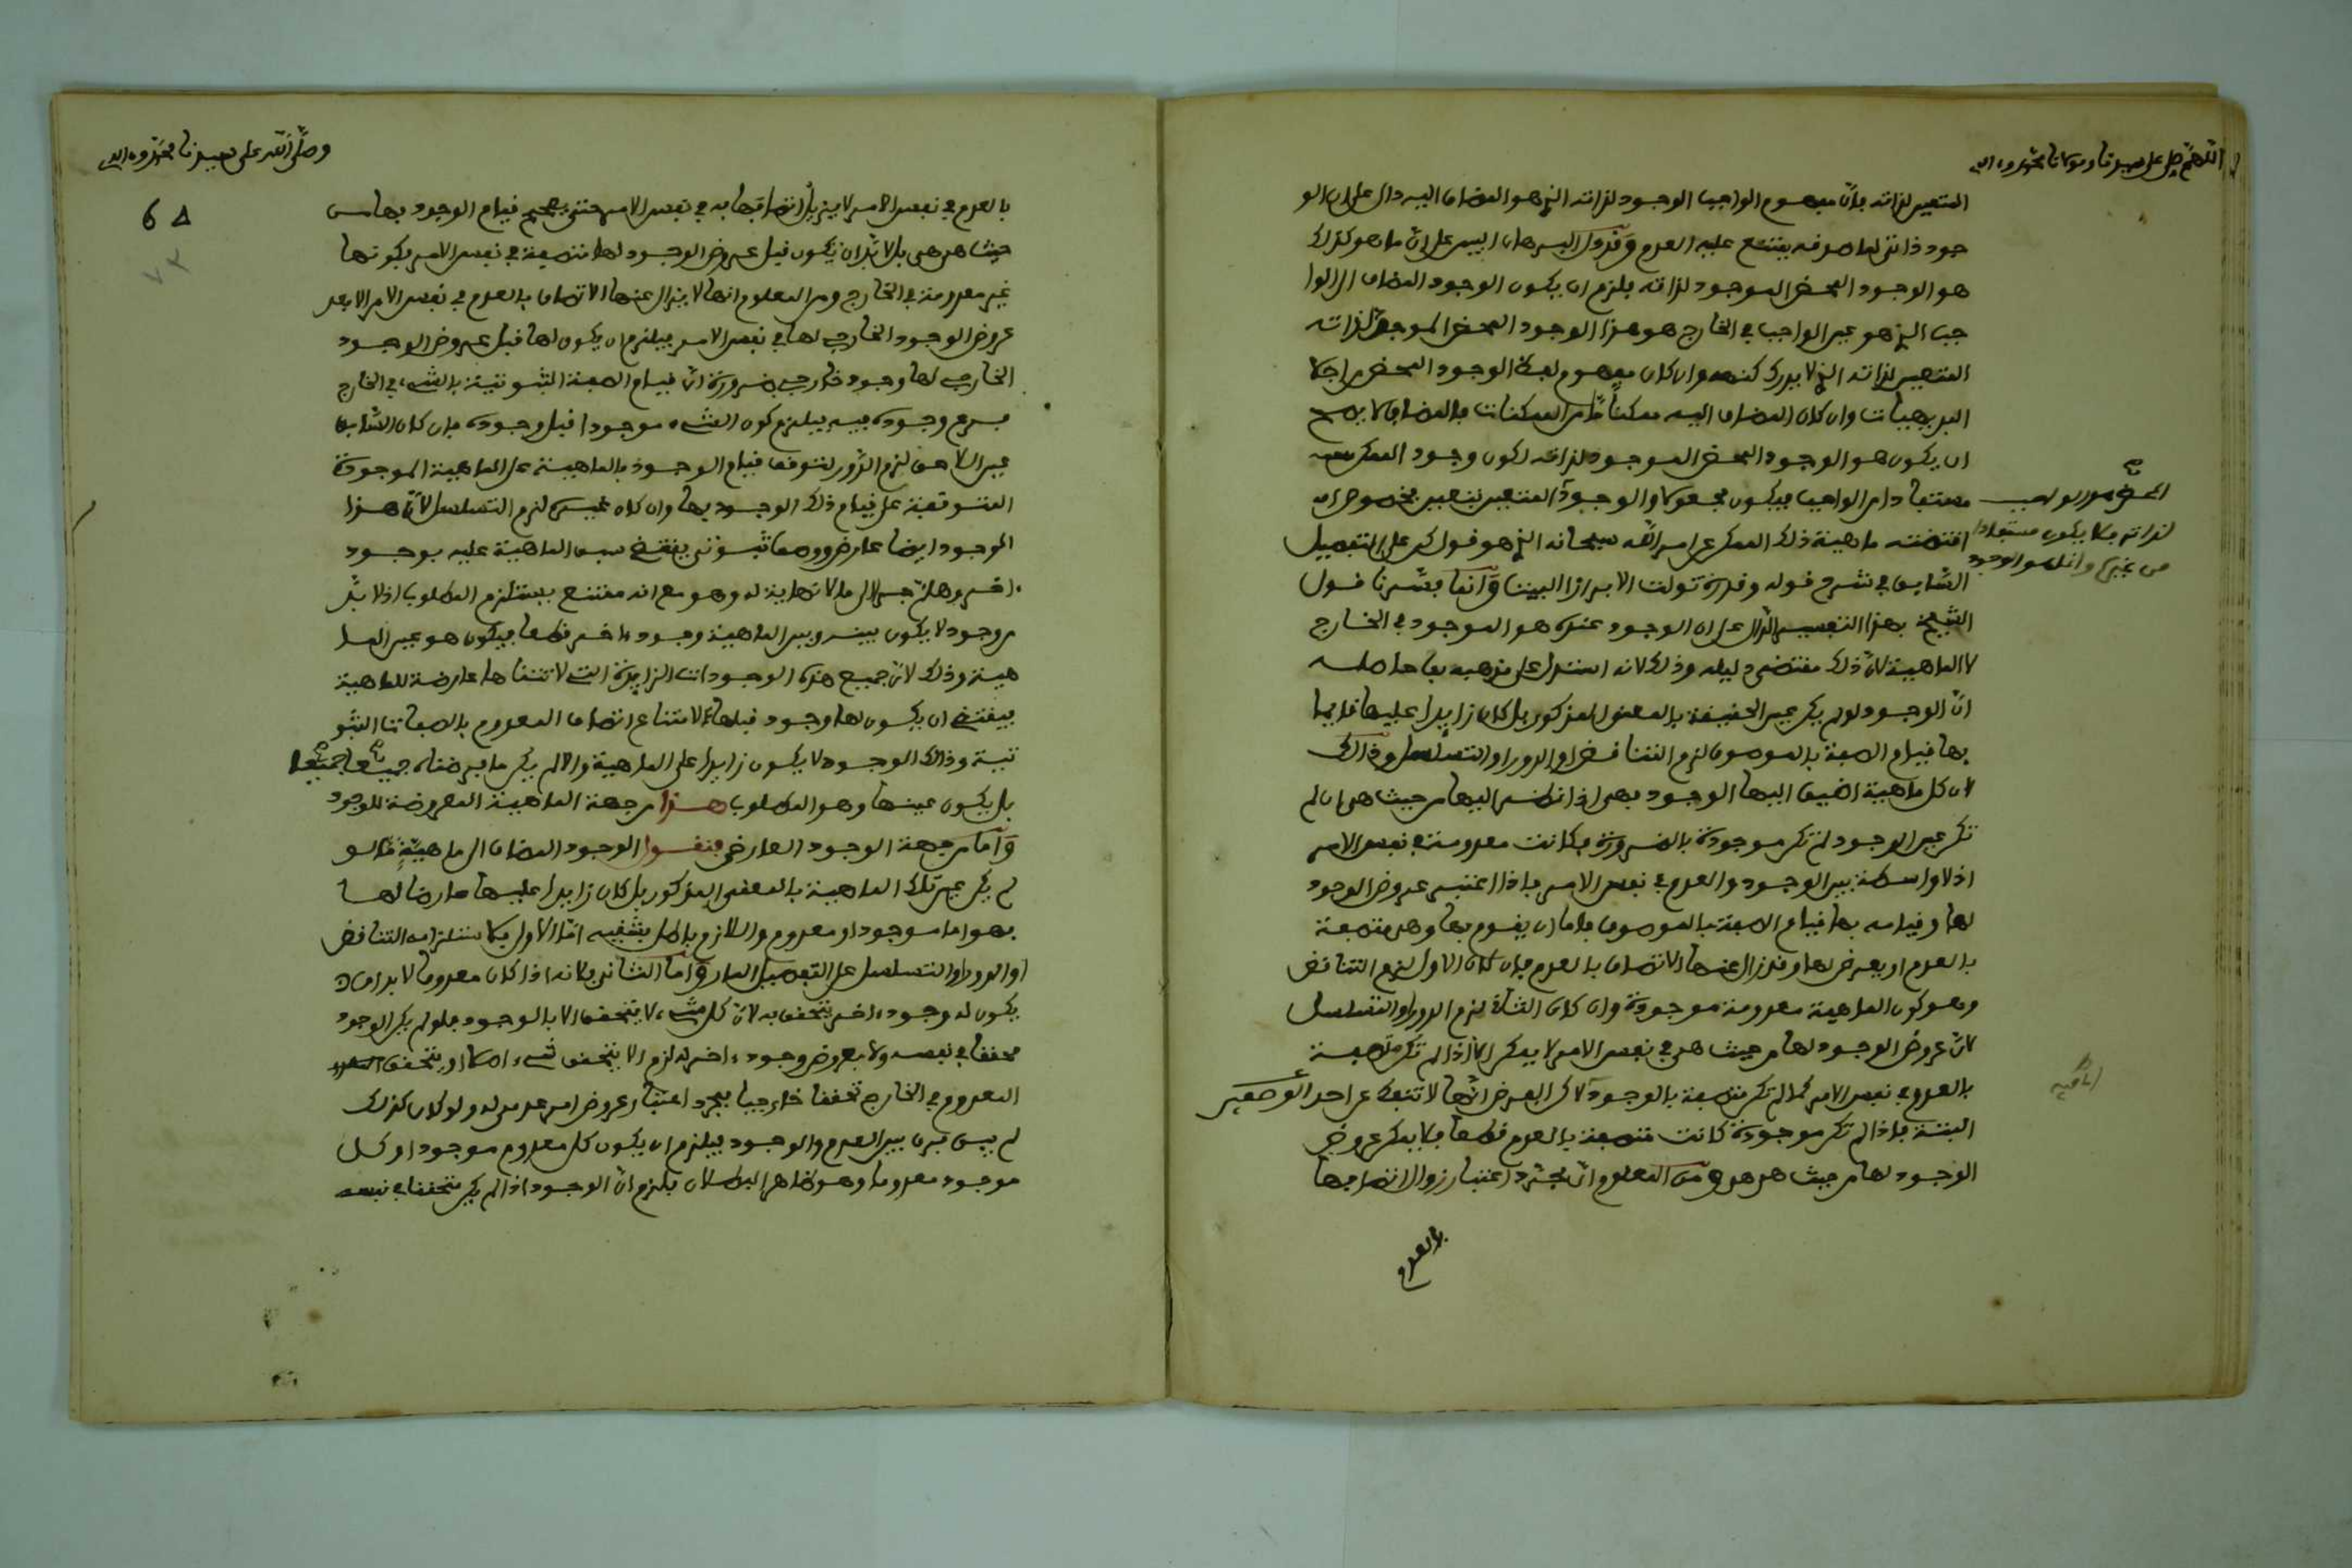 اللهم صل على سيدنا ومولانا محمد وءاله
المتعين لذاته بان مفهوم الواجب الوجود لذاته الذي هو المضاف اليه دال على ان الو
جود ذاتي لما صدقه يمتنع عليه العدم وقد دل البرهان البين على ان ما هو كذلك
هو الوجود المحض الموجود لذاته فلزم ان يكون الوجود المضاف الى الوا
جب الذي هو عين الواجب في الخارج هو هذا الوجود المحض الموجود لذاته
المتعين لذاته الذي لا يدرك كنهه وان كان مفهوم لفظ الوجود المحض من اجلا
البديهيات وان كان المضاف اليه ممكنا ما من الممكنات فالمضاف لا يصح
ان يكون هو الوجود المحض الموجود لذاته لكون وجود الممكن
مستفادا من الواجب فيكون مجعولا والوجود المتعين بتعين مخصوص
المحض هو الواجب
لذاته فلا يكون مستفادا
من غيره وانما هو الوجود
اقتضته ماهية ذلك الممكن عن امر الله سبحانه الذي هو قول كن على التفصيل
السابق في شرح قوله وقدرة تولت الابراز البيت وانما فسرنا قول
الشيخ بهذا التفسير الدال على ان الوجود عنده هو الموجود في الخارج
لا الماهية لان ذلك مقتضى دليله وذلك لانه استدل على مذهبه بما حاصله
ان الوجود لو لم يكن عين الحقيقة بالمعنى المذكور بل كان زايدا عليها قايما
بها قيام الصفة بالموصوف لزم التناقض او الدور او التسلسل وذلك
لان كل ماهية اضيف اليها الوجود فهي اذا نظر اليها من حيث هي ان لم
تكن عين الوجود لم تكن موجودة بالضرورة فكانت معدومة في نفس الامر
اذ لا واسطة بين الوجود والعدم في نفس الامر فاذا اعتبر عروض الوجود
لها وقيامه بها قيام الصفة بالموصوف فاما ان يقوم بها وهي متصفة
بالعدم او يعرض لها وقد زال عنها الاتصاف بالعدم فان كان الاول لزم التناقض
وهو كون الماهية معدومة موجودة وان كان الثاني لزم الدور او التسلسل
لان عروض الوجود لها من حيث هي في نفس الامر لا يمكن الا اذا لم تكن متصفة
بالعدم في نفس الامر كما لم تكن متصفة بالوجود لاكن الفرض انها لا تنفك عن احد الوصفين
البتة فاذا لم تكن موجودة كانت متصفة بالعدم قطعا فلا يمكن عروض
الوجود لها من حيث هي هي ومن المعلوم ان مجرد اعتبار زوال اتصافها
بالعدم
وصلى الله على سيدنا محمد وءاله
6 ۸
بالعدم في نفس الامر لا يزيل اتصافها به في نفس الامر حتى يصح قيام الوجود بها من
حيث هي هي بل لا بد ان يكون قبل عروض الوجود لها متصفة في نفس الامر بكونها
غير معدومة في الخارج ومن المعلوم انها لا يزال عنها الاتصاف بالعدم في نفس الامر الا بعد
عروض الوجود الخارجي لها في نفس الامر فيلزم ان يكون لها قبل عروض الوجود
الخارجي لها وجود خارجي ضرورة ان قيام الصفة الثبوتية بالشيء في الخارج
فرع وجوده فيه فيلزم كون الشيء موجودا قبل وجوده فان كان السابق
عين اللاحق لزم الدور لتوقف قيام الوجود بالماهية على الماهية الموجودة
المتوقفة على قيام ذلك الوجود بها وان كان غيره لزم التسلسل لان هذا
الوجود ايضا عارض ووصف ثبوتي يقتضي سبق الماهية عليه بوجود
ءاخر وهلم جرا الى ما لا نهاية له وهو مع انه ممتنع يستلزم المطلوب اذ لا بد
من وجود لا يكون بينه وبين الماهية وجود ءاخر قطعا فيكون هو عين الما
هية وذلك لان جميع هذه الوجودات الزايدة التي لا تتناها عارضة للماهية
فيقتضي ان يكون لها وجود قبلها لامتناع اتصاف المعدوم بالصفات الثبو
تية وذلك الوجود لا يكون زايدا على الماهية والا لم يكن ما فرضناه جميعا جميعا
بل يكون عينها وهو المطلوب هذا من جهة الماهية المعروضة للوجود
واما من جهة الوجود العارض فنقول الوجود المضاف الى ماهية ما لو
لم يكن عين تلك الماهية بالمعنى المذكور بل كان زايدا عليها عارضا لها
فهو اما موجود او معدوم واللازم باطل بشقيه اما الاول فلاستلزامه التناقض
او الدور او التسلسل على التفصيل المار واما الثاني فلانه اذا كان معدوما لا بد ان
يكون له وجود ءاخر يتحقق به لان كل شيء لا يتحقق الا بالوجود فلو لم يكن الوجود
محققا في نفسه ولا بعروض وجود ءاخر له لزم الا يتحقق شيء اصلا او يتحقق
المعدوم في الخارج تحققا خارجيا بمجرد اعتبار عروض امر عدمي له ولو كان كذلك
لم يبق فرق بين العدم والوجود فيلزم ان يكون كل معدوم موجودا وكل
موجود معدوما وهو ظاهر البطلان فلزم ان الوجود اذا لم يكن متحققا في نفسه